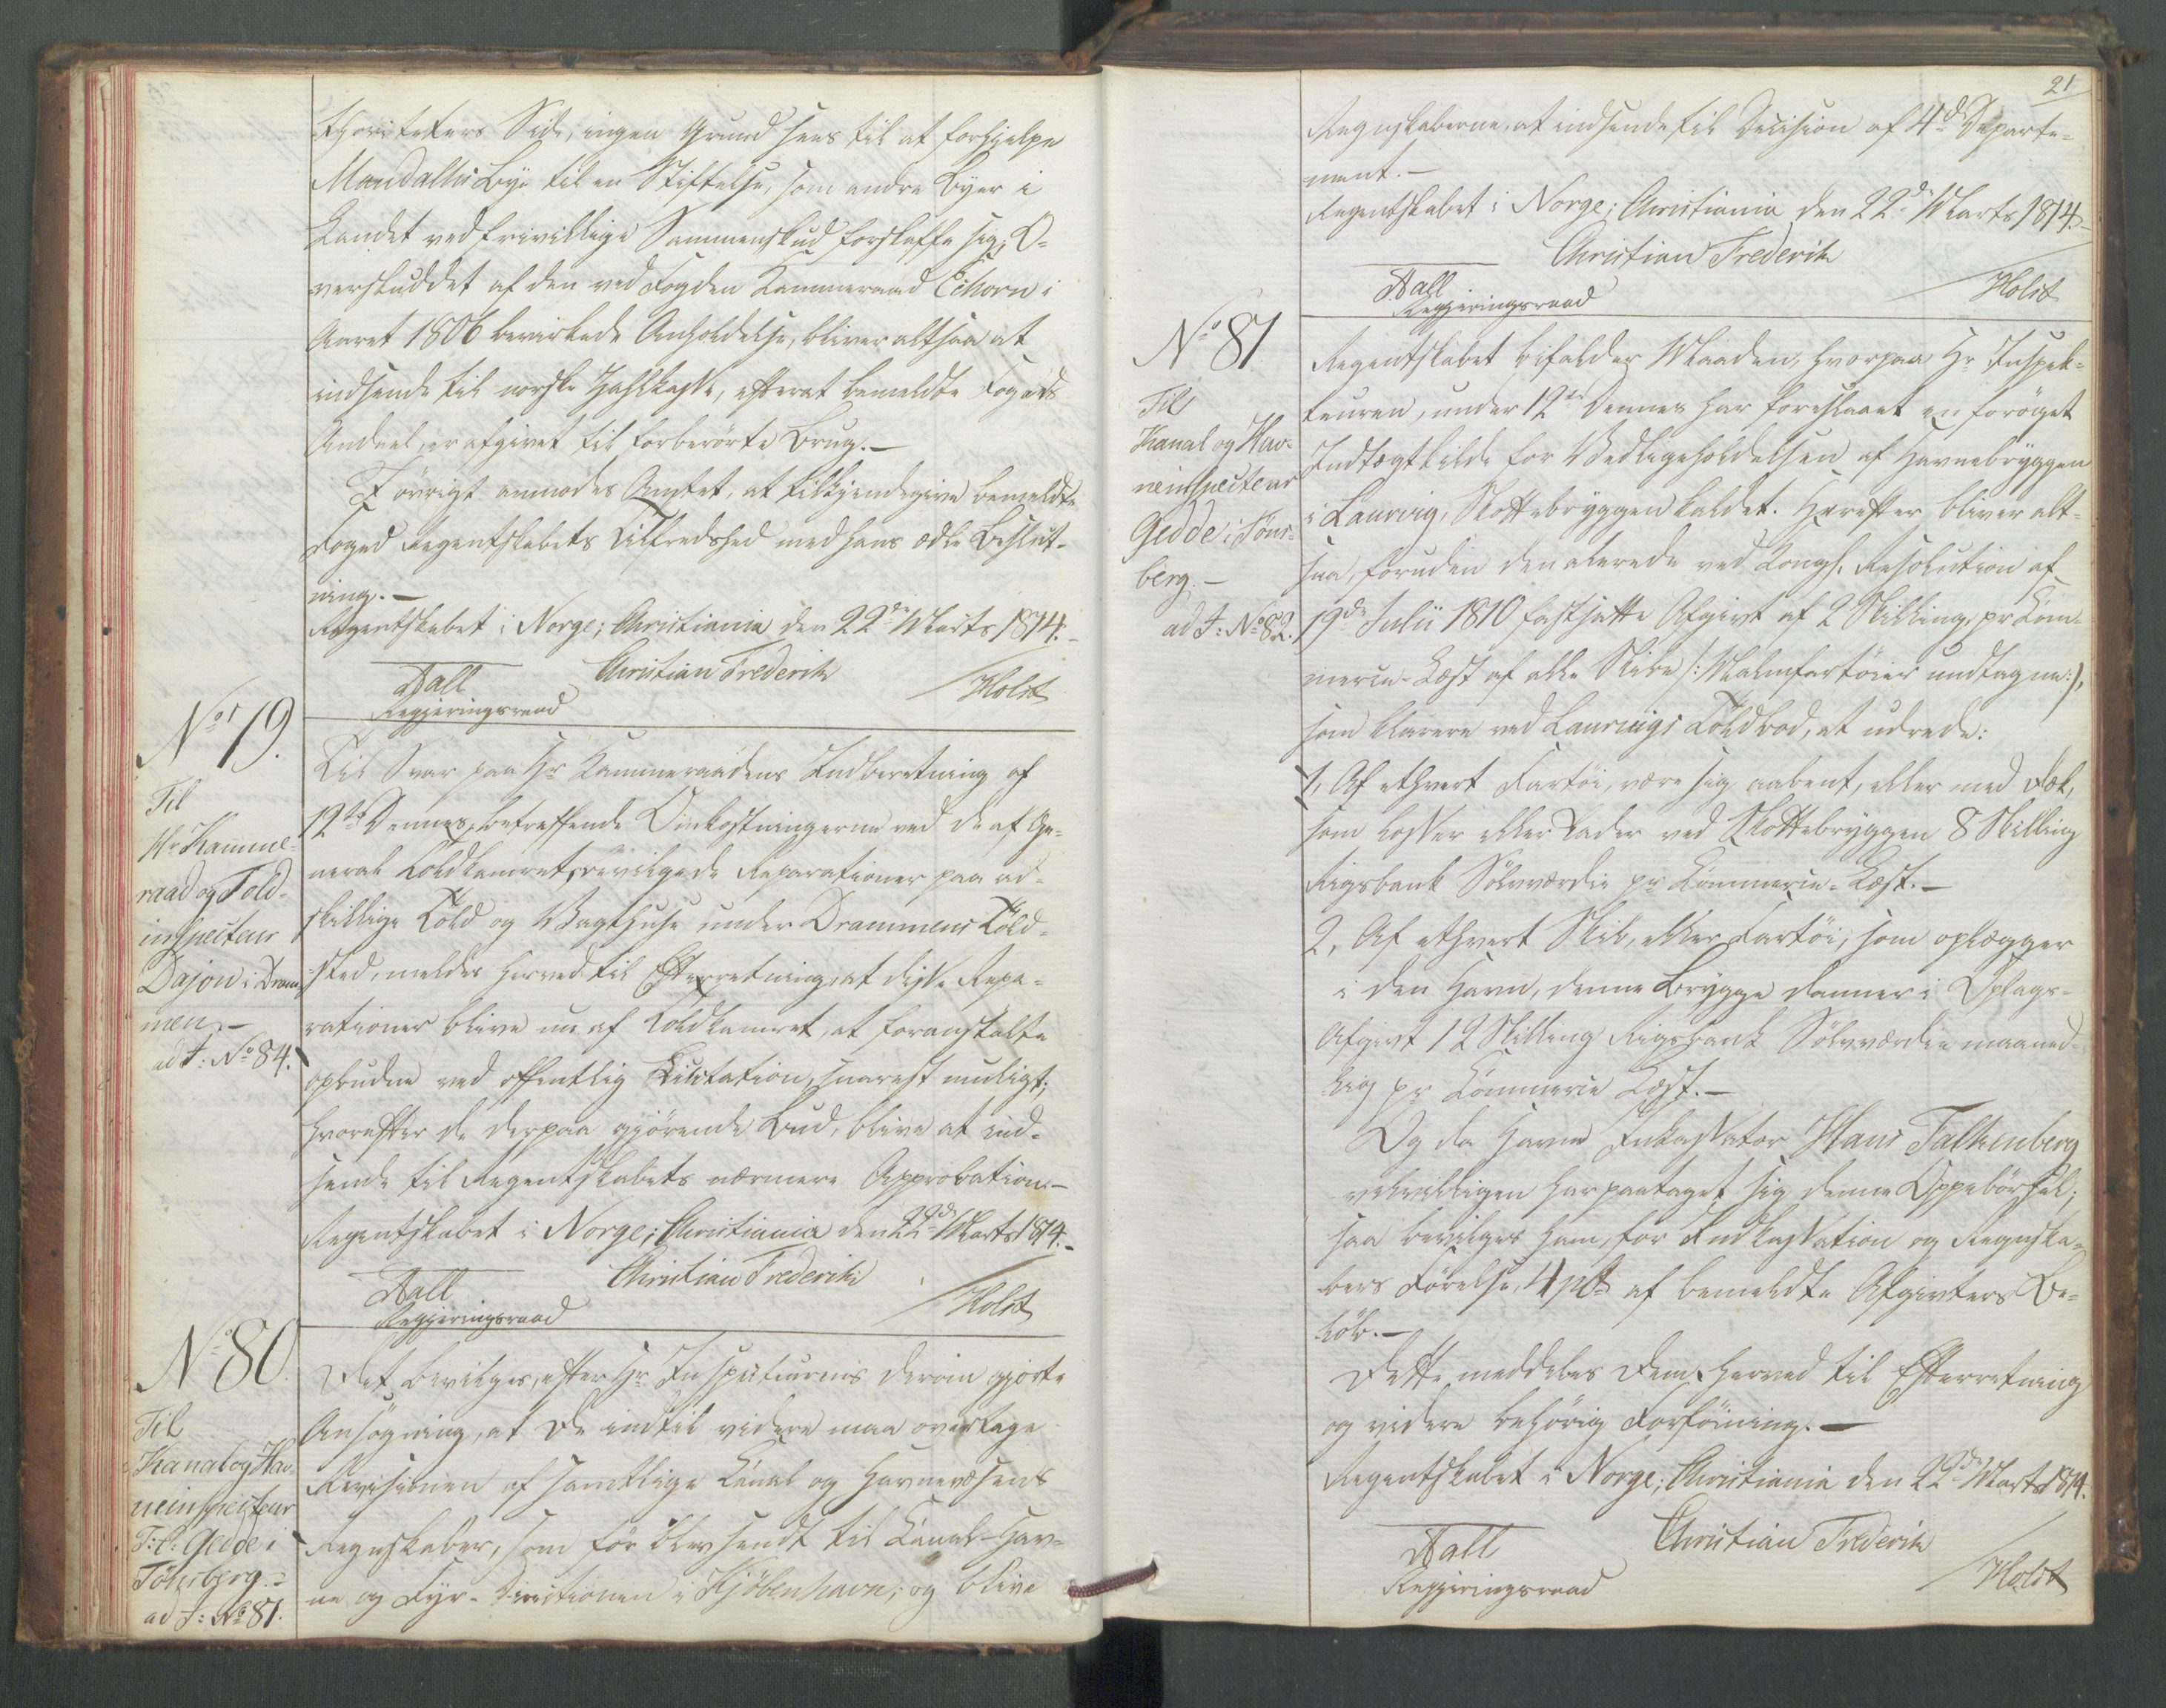 thoriteters Side, ingen Grund sees til at forhjelpe
Mandalls Bye til en Stiftelse, som andre Byer i
Landet ved frivillige Sammenskud forskaffe sig; O-
verskuddet af den ved Fogden Kammerraad Eihorn i
Aaret 1806 bevirkede Anholdelse, bliver altsaa at
indsende til norske Zahlkasse, efterat bemeldte Fogeds
Andeel, er afgivet til forberörte Brug.—
I övrigt anmodes Amtet, at tilkjendegive bemeldte
Foged Regentskabets Tilfredshed med hans ædle Beslut-
ning.—
Regentskabet i Norge; Christiania den 22de Marts 1814.-
Christian Frederik
Aall
Regjeringsraad
Holst
No 79.
Til
Hr Kamme-
raad og Told-
inspecteur
Dajon i Dram-
men.—
ad J: No 84.
Til Svar paa Hr Kammeraadens Indberetning af
12te Dennes, betreffende Omkostningerne ved de af Ge-
neral Toldkamret bevilgede Reparationer paa ad-
skillige Told og Vagthuse under Drammens Told-
sted, meldes herved til Efterretning, at disse Repa-
rationer blive nu af Toldkamret, at foranstalte
opbudne ved offentlig Licitation, snarest muligt;
hvorefter de derpaa gjörende Bud, blive at ind-
sende til Regentskabets nærmere Approbation.—
Regentskabet i Norge; Christiania den 22de Marts 1814.-
Christian Frederik
Aall
Regjeringsraad
Holst
No 80.
Til
Kanal og Hav-
neinspecteur
Gedde i
Tönsberg.-
ad J: No 81.
Det bevilges, efter Hr Inspecteurens derom gjorte
Ansögning, at De indtil videre maa overtage
Revisionen af samtlige Canal og Havnevæsens
Regnskaber, som för blev sendt til Canal-Hav-
ne og Fyr-Directionen i Kjöbenhavn; og blive
21
Regnskaberne, at indsende til Decision af 4de Departe-
ment.—
Regentskabet i Norge; Christiania den 22de Marts 1814.-
Christian Frederik
Aall
Regjeringsraad
Holst
No 81
Til
Kanal og Hav-
neinspecteur
Gedde i Töns-
berg.—
ad J: No 82.
Regentskabet bifalder Maaden, hvorpaa Hr Inspek-
teuren, under 12te Dennes har foreslaaet en foröget
Indtægtkilde for Vedligeholdelsen af Havnebryggen
i Laurvig, Skottebryggen kaldet. Herefter bliver alt-
saa, foruden den allerede ved Kongl. Resolution af
19de Julii 1810 fastsatte Afgivt af 2 Skilling pr Com-
merce-Læst af alle Skibe /: Malmfartöier undtagne :/,
som klarere ved Laurvigs Toldbod, at udrede:
1, Af ethvert Fartöi, være sig aabent, eller med Dæk,
som losser eller lader ved Skottebryggen 8 Skilling
Rigsbank Sölvværdie pr Commerce-Læst.—
2, Af ethvert Skib, eller Fartöi, som oplægger
i den Havn, denne Brygge danner i Oplags-
Afgivt 12 Skilling Rigsbank Sölvværdie maaned-
lig pr Commerce Læst.—
Og da Havne Inkassator Hans Falkenberg
velvilligen har paataget sig denne Oppebörsel,
saa bevilges ham, for Indkassation og Regnska-
bers Förelse, 4 pCt af bemeldte Afgivters Be-
löb.—
Dette meddeles Dem herved til Efterretning
og videre behörig Forföining.—
Regentskabet i Norge; Christiania den 22de Marts 1814.
Christian Frederik
Aall
Regjeringsraad
Holst